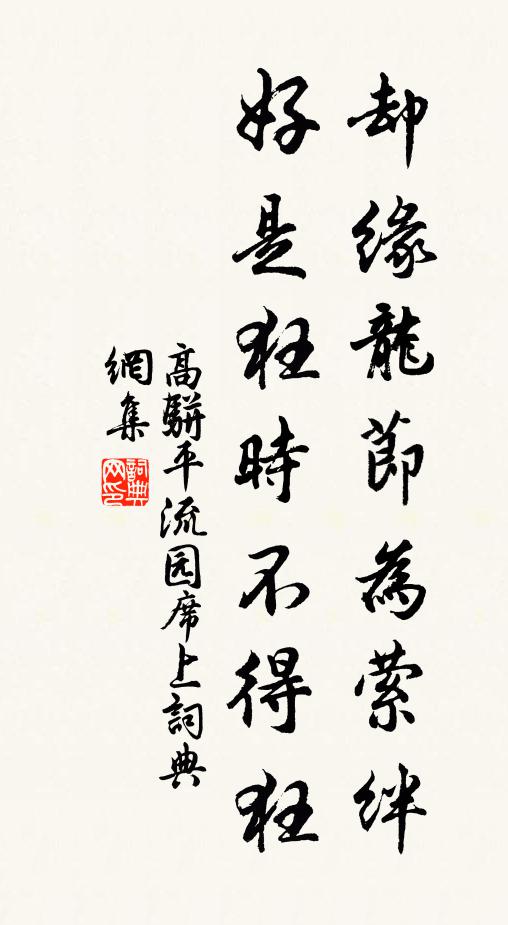 却缘龍節為萦絆
好是狂時不得狂
高駢平流园席上詞典
網集
詞典
网印